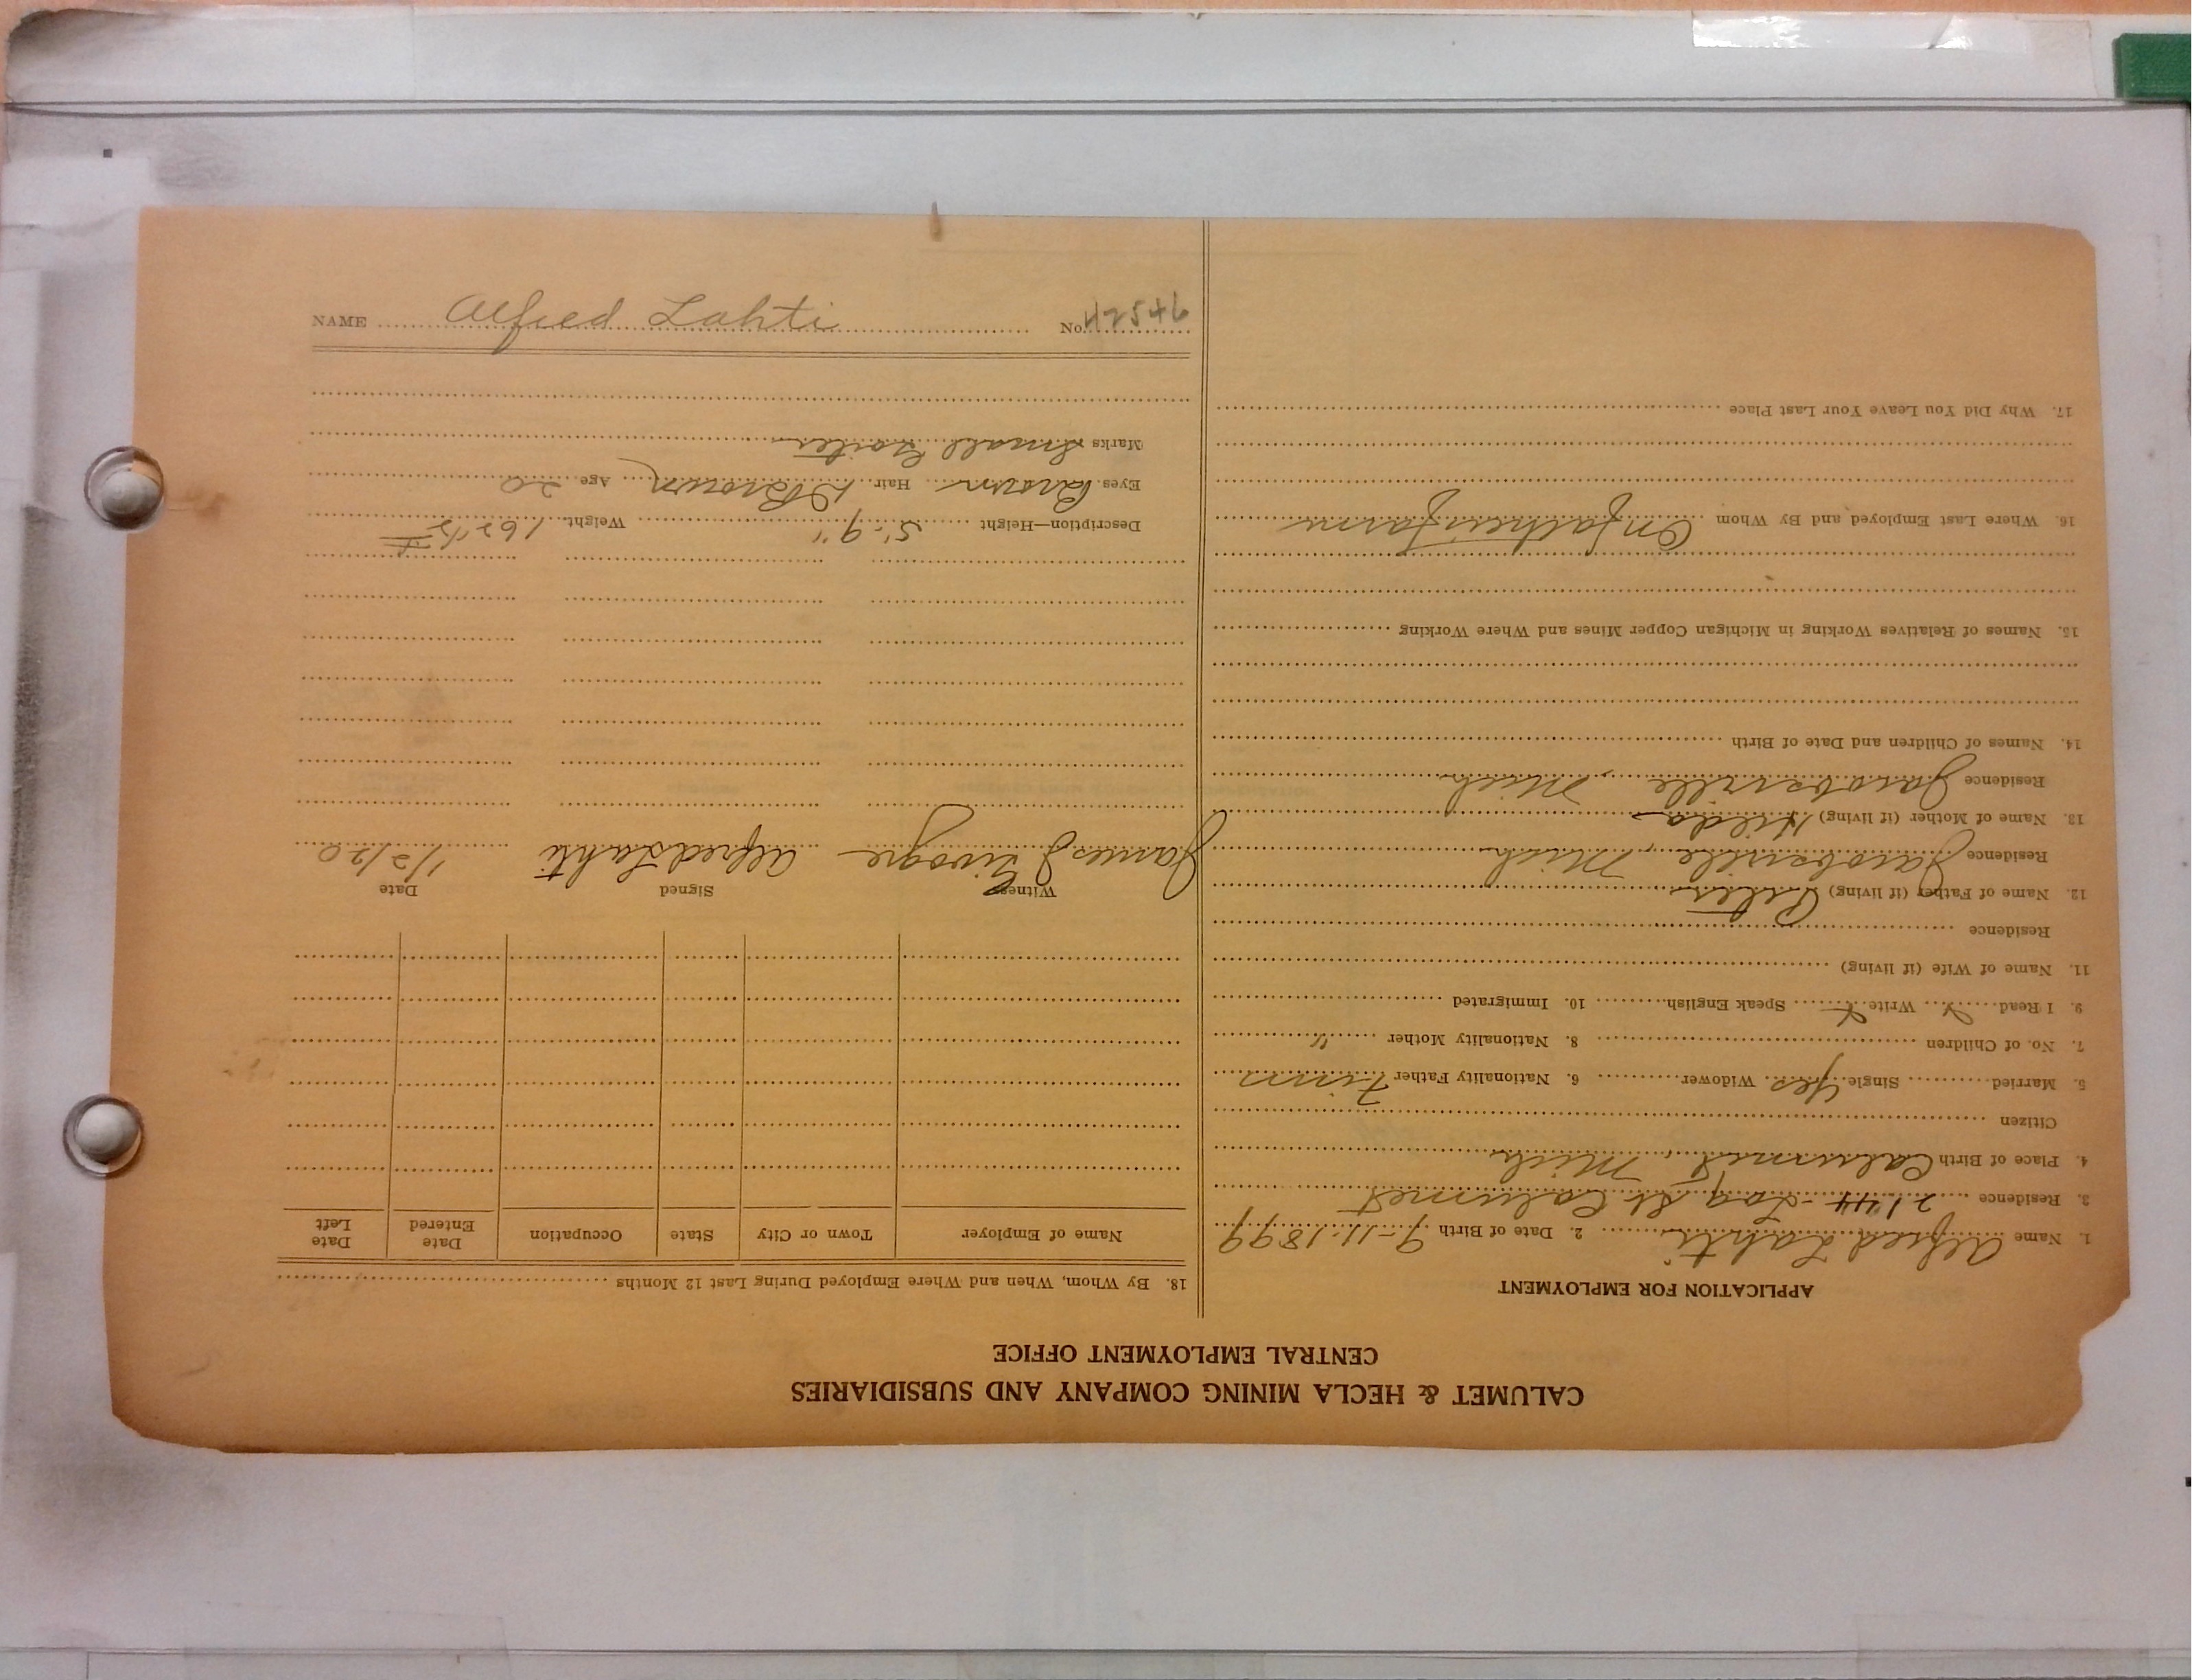 CALUMET & HECLA MINING COMPANY AND SUBSIDIARIES
CENTRAL EMPLOYMENT OFFICE
APPLICATION FOR EMPLOYMENT
1. Name Alfred Lahti 2. Date of Birth 9-11-1899
3. Residence 2144-Log St Calumet
4. Place of Birth Calumet, Mich
Citizen
5. Married Single Yes Widower 6. Nationality Father Finn
7. No. of Children 8. Nationality Mother "
9. I Read Write Speak English 10. Immigrated
11. Name of Wife (if living)
Residence
12. Name of Father (if living) Peter
Residence Jacobsville, Mich
13. Name of Mother (if living) Hilda
Residence Jacobsville, Mich
14. Names of Children and Date of Birth
15. Names of Relatives Working in Michigan Copper Mines and Where Working
16. Where Last Employed and By Whom On fathers farm
17. Why Did You Leave Your Last Place
18. By Whom, When and Where Employed During Last 12 Months
Name of Employer Town or City State Occupation Date Entered Date Left
Witness Signed Date
James J Alfred Lahti 1/2/20
Description—Height 5'-9" Weight 162½
Eyes Brown Hair D Brown Age 20
Marks Small Goiter
NAME Alfred Lahti No. 42546